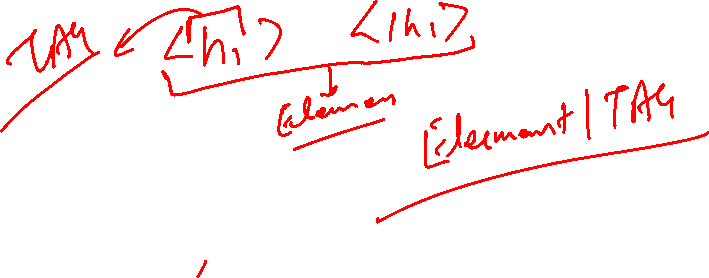 TAG <h1> </h1>
Elemen
Element | TAG